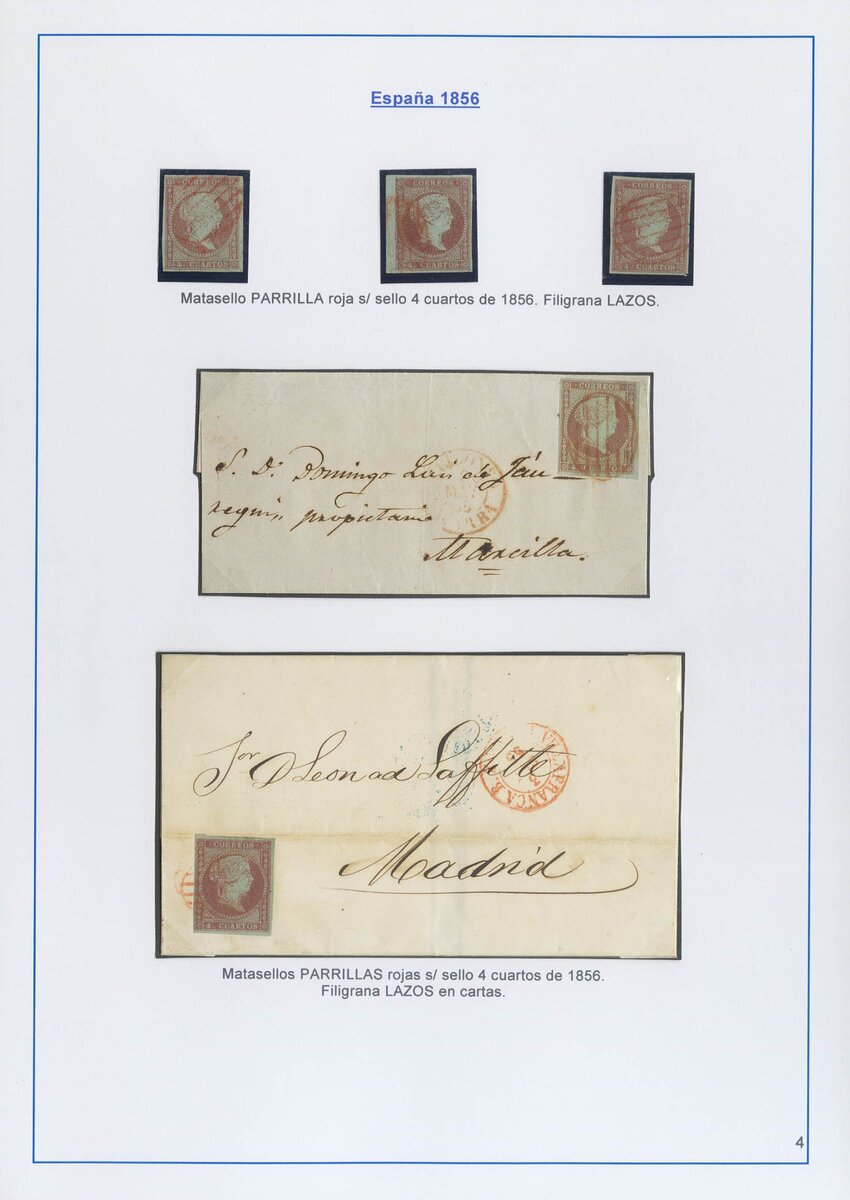 España 1856
CORREOS CORREOS CORREOS
4 CUARTOS 4 CUARTOS 4 CUARTOS
Matasello PARRILLA roja s/ sello 4 cuartos de 1856. Filigrana LAZOS.
CORREOS
4 CUARTOS
S. Dn. Domingo Luis de Jáu-
regui, propietario
Marcilla.
VILLAFRANCA B.
Sor D Leonad Laffitte
Madrid
CORREOS
4 CUARTOS
Matasellos PARRILLAS rojas s/ sello 4 cuartos de 1856.
Filigrana LAZOS en cartas.
4